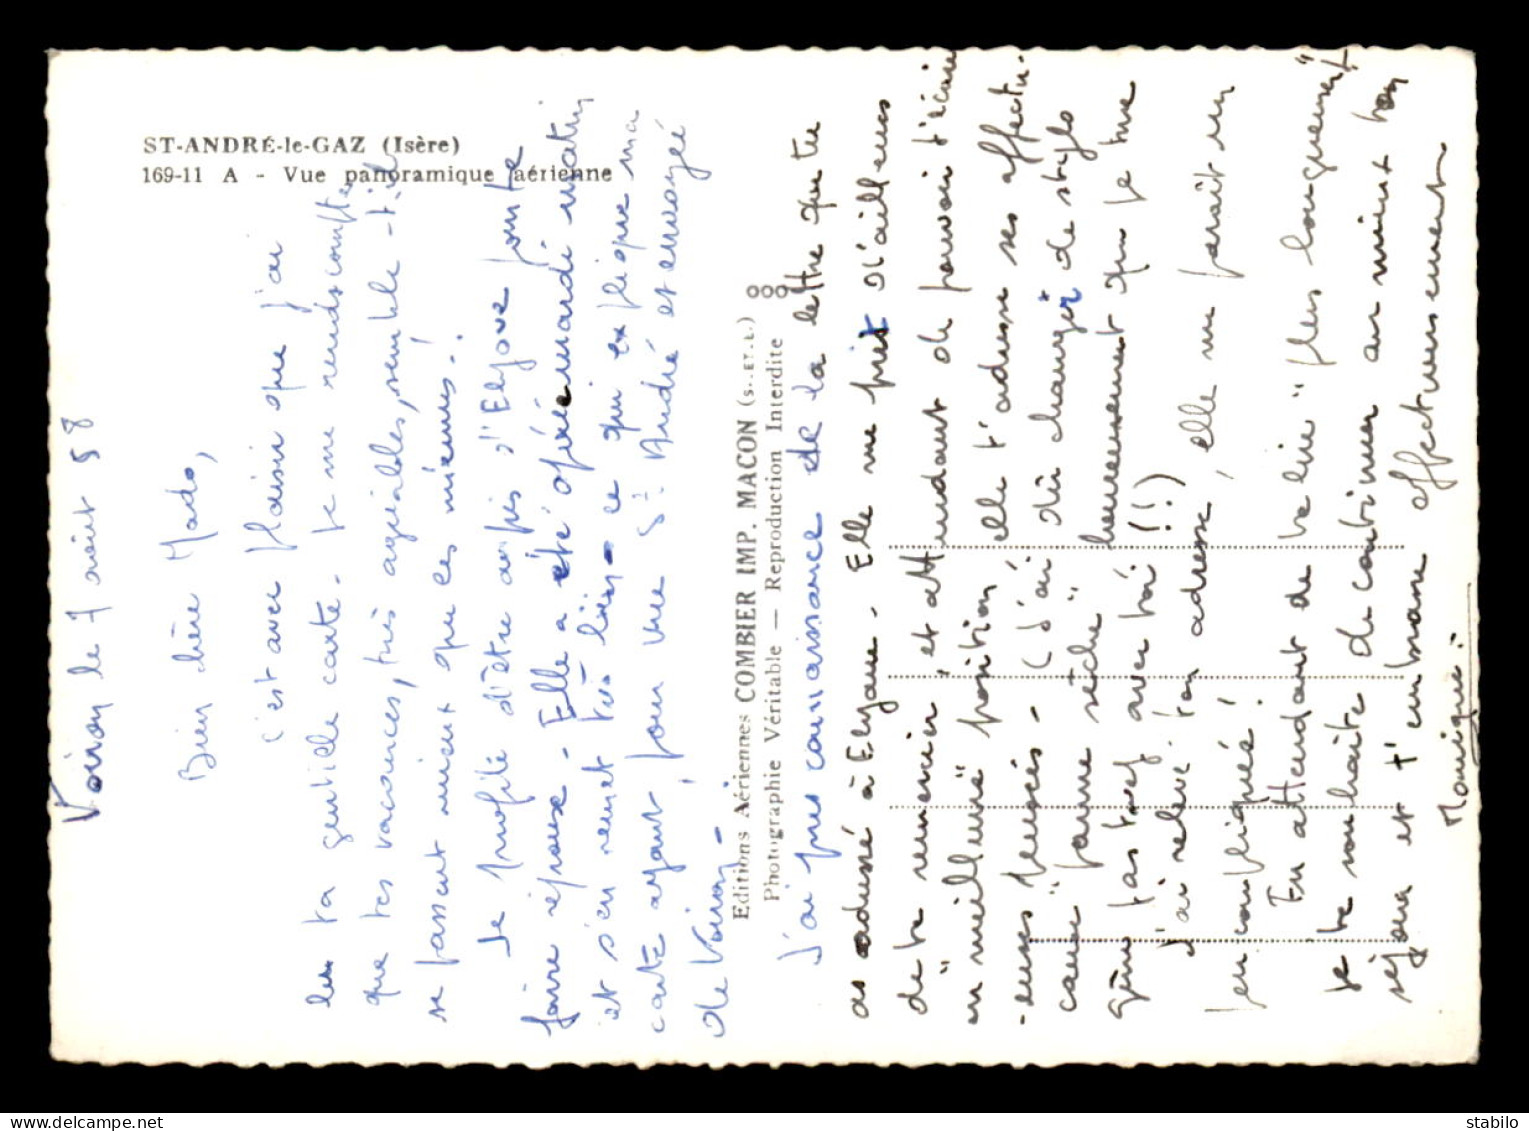 ST-ANDRÉ-le-GAZ (Isère)
169-11 A - Vue panoramique aérienne
Voiron le 7 août 58
Bien chère Mado,
c'est avec plaisir que j'ai
lu ta gentille carte. Je me rends compte
que tes vacances, très agréables, semble-t-il
se passent mieux que les miennes.!
Je profite d'être auprès d'Elyane pour te
faire réponse. Elle a été opérée mardi matin
et s'en remet très bien - ce qui explique ma
carte ayant pour vue St André et envoyée
de Voiron -
Editions Aériennes COMBIER IMP. MACON (S.-ET-L.)
Photographie Véritable — Reproduction Interdite
J'ai pris connaissance de la lettre que tu
as adressé à Elyane. Elle me prie d'ailleurs
de te remercier, et attendant de pouvoir t'écrire
en "meilleure" position, elle t'adresse ses affectu-
-euses pensées - (J'ai dû changer de stylo
cause "panne sèche" heureusement que je me
gêne pas trop avec toi (!!)
J'ai relevé ton adresse, elle me paraît un
peu compliquée!
En attendant de te lire "plus longuement"
je te souhaite de continuer au mieux ton
séjour et t'embrasse affectueusement
Monique.